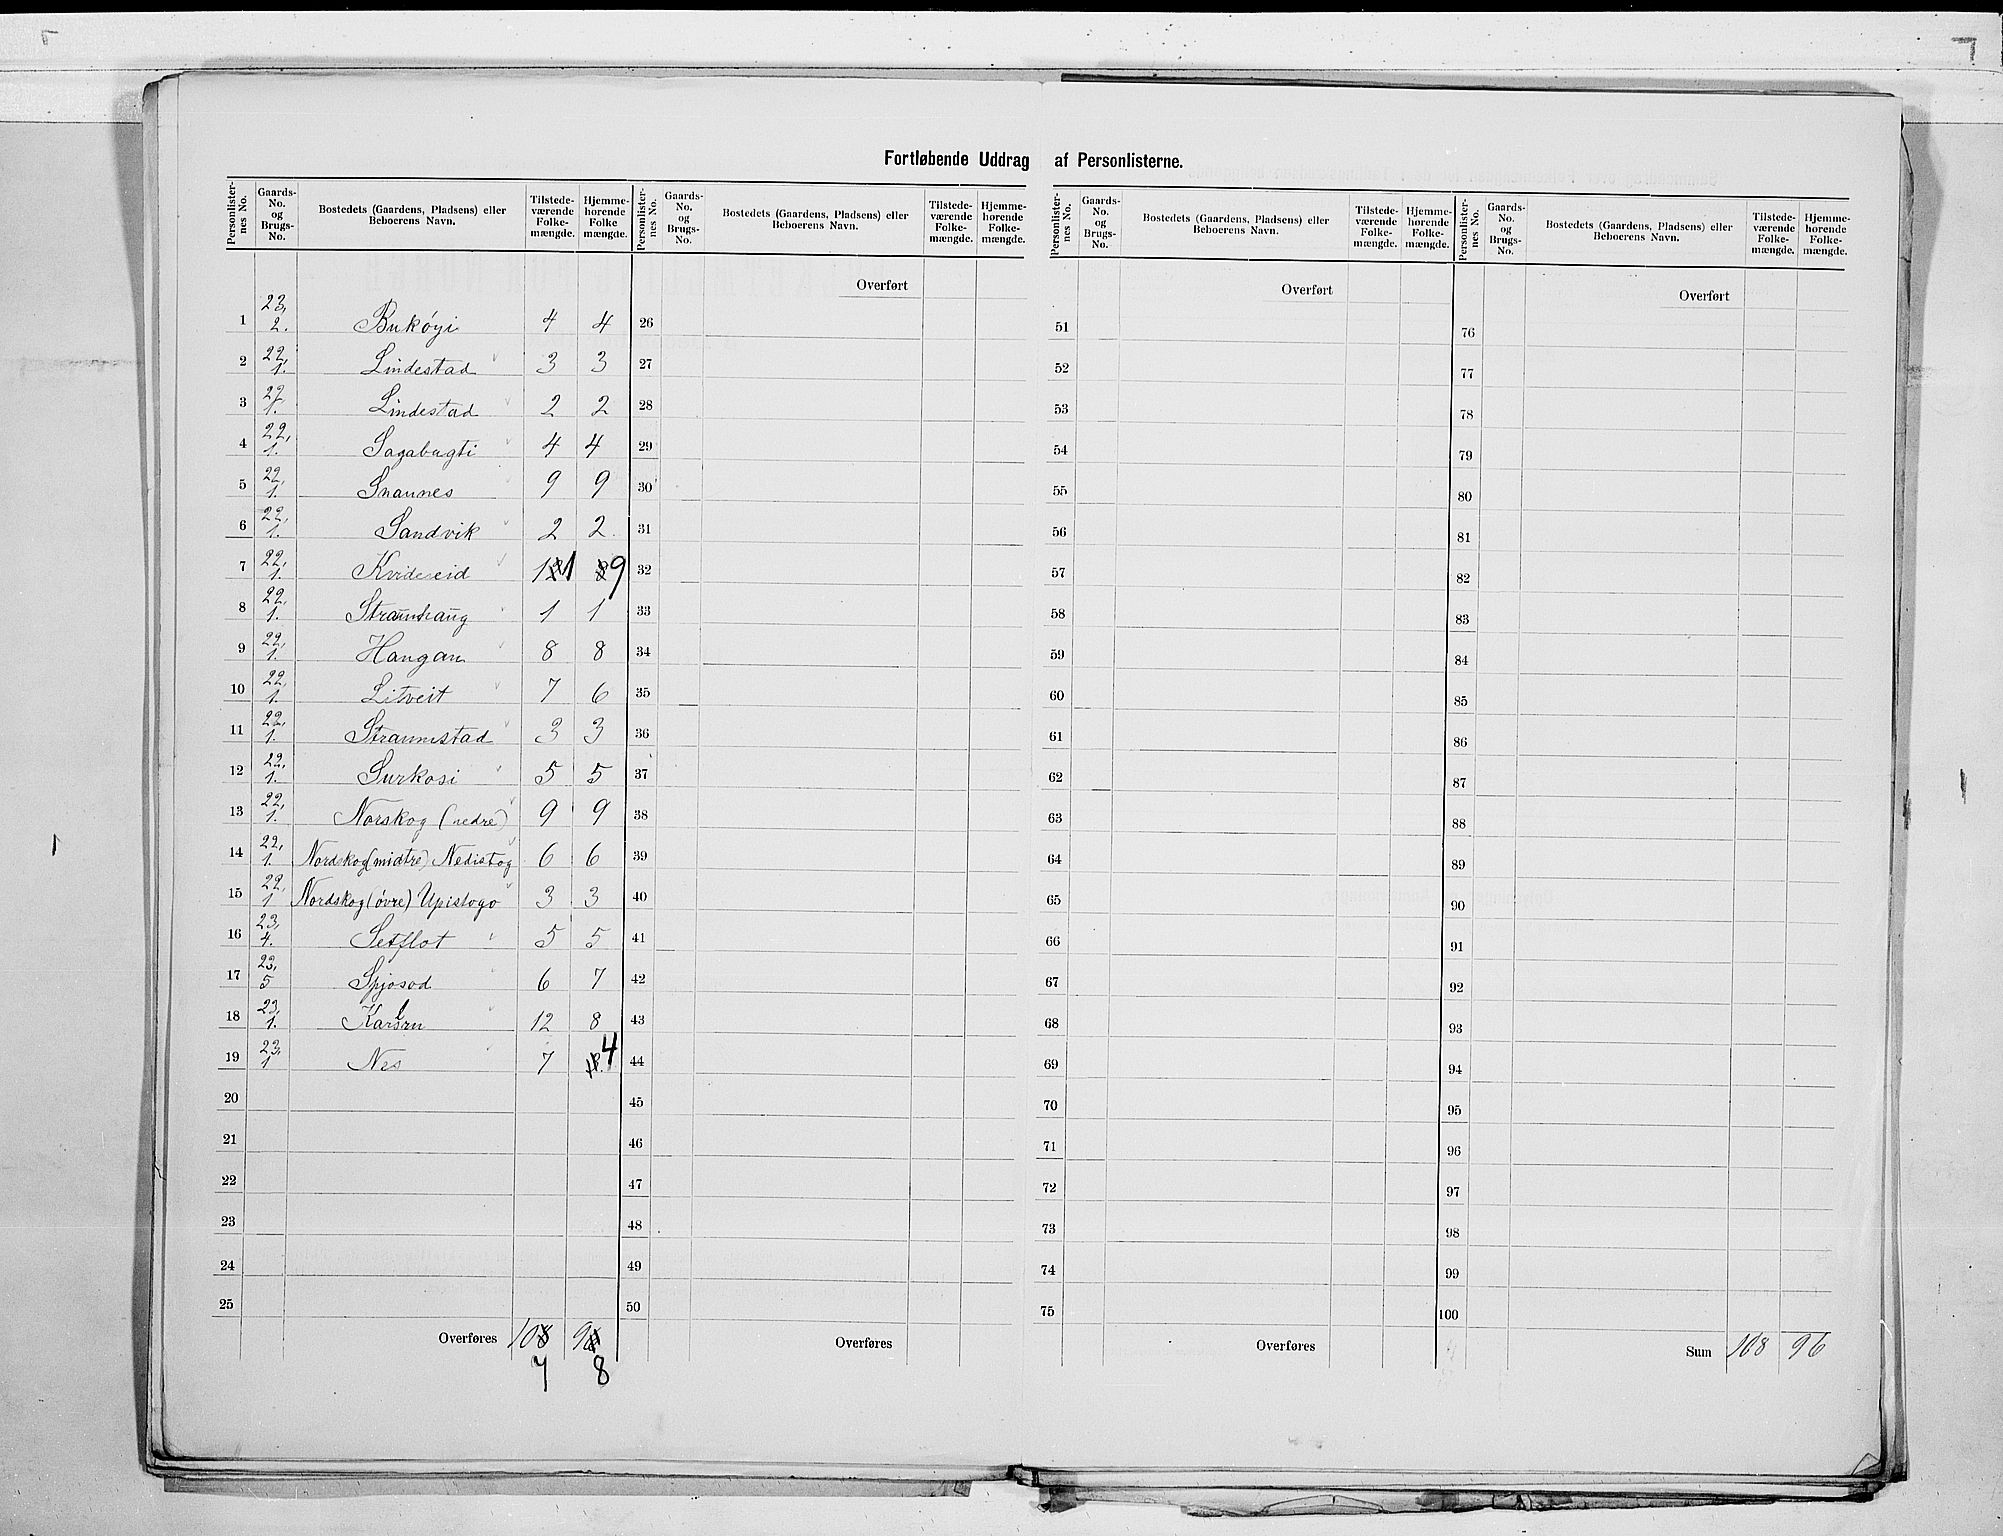 Fortløbende Uddrag af Personlisterne.
Personlister-nes No. Gaards-No. og Brugs-No. Bostedets (Gaardens, Pladsens) eller Beboerens Navn. Tilstede-værende Folke-mængde. Hjemme-hørende Folke mængde.
Personlister-nes No. Gaards-No. og Brugs-No. Bostedets (Gaardens, Pladsens) eller Beboerens Navn. Tilstede-værende Folke-mængde. Hjemme-hørende Folke-mængde.
Personlister-nes No. Gaards-No. og Brugs-No. Bostedets (Gaardens, Pladsens) eller Beboerens Navn. Tilstede-værende Folke-mængde. Hjemme-hørende Folke-mængde.
Personlister-nes No. Gaards-No. og Brugs-No. Bostedets (Gaardens, Pladsens) eller Beboerens Navn. Tilstede-værende Folke-mængde. Hjemme-hørende Folke-mængde.
Overført Overført Overført
1 23, 2. Bukøyi 4 4 26 51 76
2 22, 1. Lindestad 3 3 27 52 77
3 22, 1. Lindestad 2 2 28 53 78
4 22, 1. Sagabugti 4 4 29 54 79
5 22, 1. Snaunes 9 9 30 55 80
6 22, 1. Sandvik 2 2 31 56 81
7 22, 1. Kvideseid 11 9 32 57 82
8 22, 1. Straumhaug 1 1 33 58 83
9 22, 1. Haugan 8 8 34 59 84
10 22, 1. Litveit 7 6 35 60 85
11 22, 1. Straumstad 3 3 36 61 86
12 22, 1. Surkosi 5 5 37 62 87
13 22, 1. Norskog (nedre) 9 9 38 63 88
14 22, 1. Nordskog (midtre) Nedistog 6 6 39 64 89
15 22, 1 Nordskog (övre) Upistogo 3 3 40 65 90
16 23, 4. Setflot 5 5 41 66 91
17 23, 5 Spjosod 6 7 42 67 92
18 23, 1. 12 8 43 68 93
19 23, 1 Nes 7 4 44 69 94
20 45 70 95
21 46 71 96
22 47 72 97
23 48 73 98
24 49 74 99
25 50 75 100
Overføres 108 9 Overføres Overføres Sum 108 96
7 8